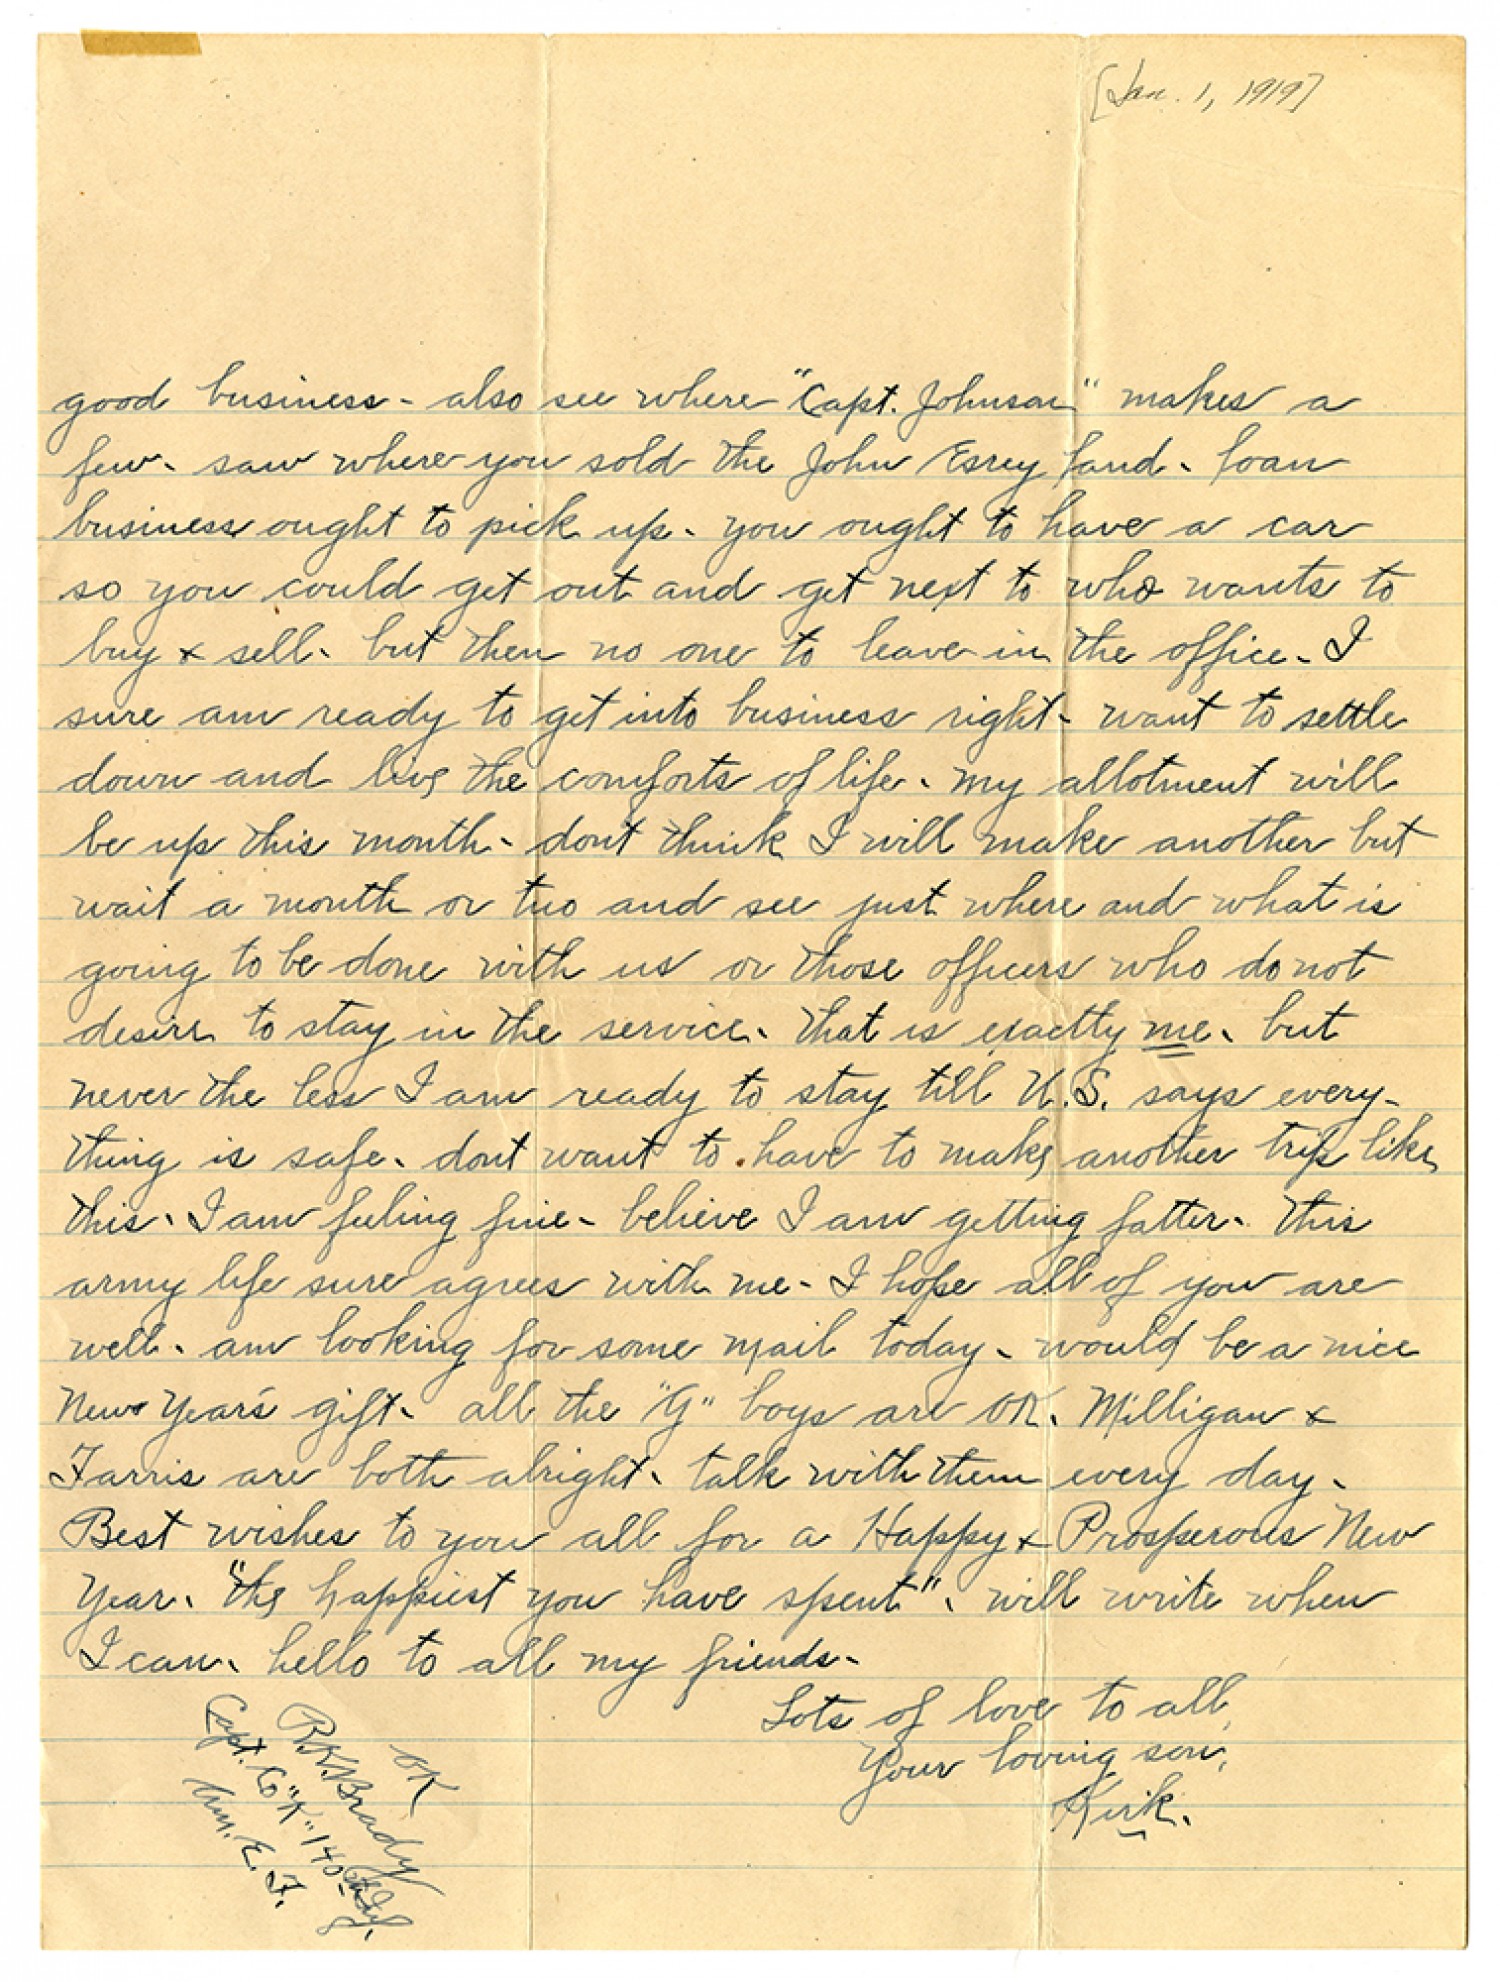 [Jan. 1, 1919]
good business - also see where "Capt. Johnson" makes a
few - saw where you sold the John Esrey land - loan
business ought to pick up - you ought to have a car
so you could get out and get next to who wants to
buy & sell - but then no one to leave in the office - I
sure am ready to get into business right - want to settle
down and live the comforts of life - my allotment will
be up this month - dont think I will make another but
wait a month or two and see just where and what is
going to be done with us or those officers who do not
desire to stay in the service - that is exactly me - but
never the less I am ready to stay till U.S. says every-
thing is safe - dont want to have to make another trip like
this - I am feeling fine - believe I am getting fatter - this
army life sure agrees with me - I hope all of you are
well - am looking for some mail today - would be a nice
New Year's gift - all the "G" boys are OK. Milligan &
Farris are both alright - talk with them every day -
Best wishes to you all for a Happy & Prosperous New
Year - "the happiest you have spent" - will write when
I can - hello to all my friends -
Lots of love to all,
Your loving son,
Kirk.
OK
R.K. Brady
Capt. Co "K" 140th Inf.
Am. E. F.